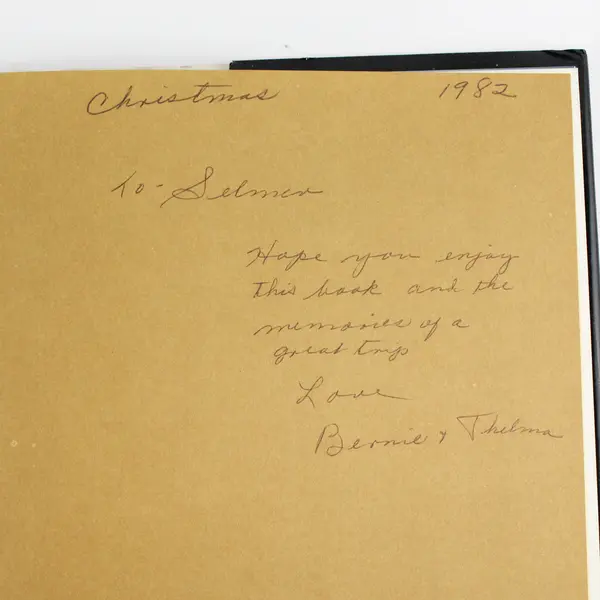 Christmas 1982
To - Selmer
Hope you enjoy
this book and the
memories of a
great trip
Love
Bernie & Thelma